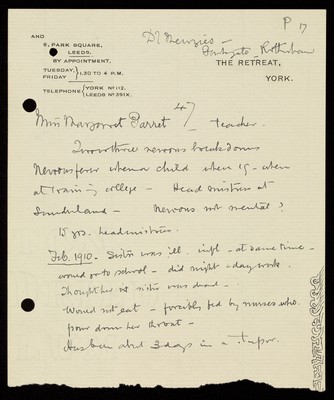 P 17
AND
Dr Menzies -
5, PARK SQUARE,
LEEDS.
Rotherham
BY APPOINTMENT.
THE RETREAT,
TUESDAY, } 1.30 TO 4 P.M.
FRIDAY
YORK.
TELEPHONE { YORK No 112.
LEEDS No 391X.
47
Miss Margaret Parret teacher.
Two or three nervous breakdowns
Nervous fever when a child when 19 - when
at training college - Head mistress at
Sunderland - Nervous not mental ?
15 yrs. headmistress.
Feb. 1910. Sister was ill. infl - at same time -
would go to school - did night + day work.
Thought her sister was dead -
Would not eat - forcibly fed by nurses who
pour down her throat -
Has been abt 3 days in a stupor.